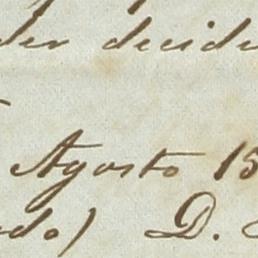 der decidi
Agosto 15
do) D.